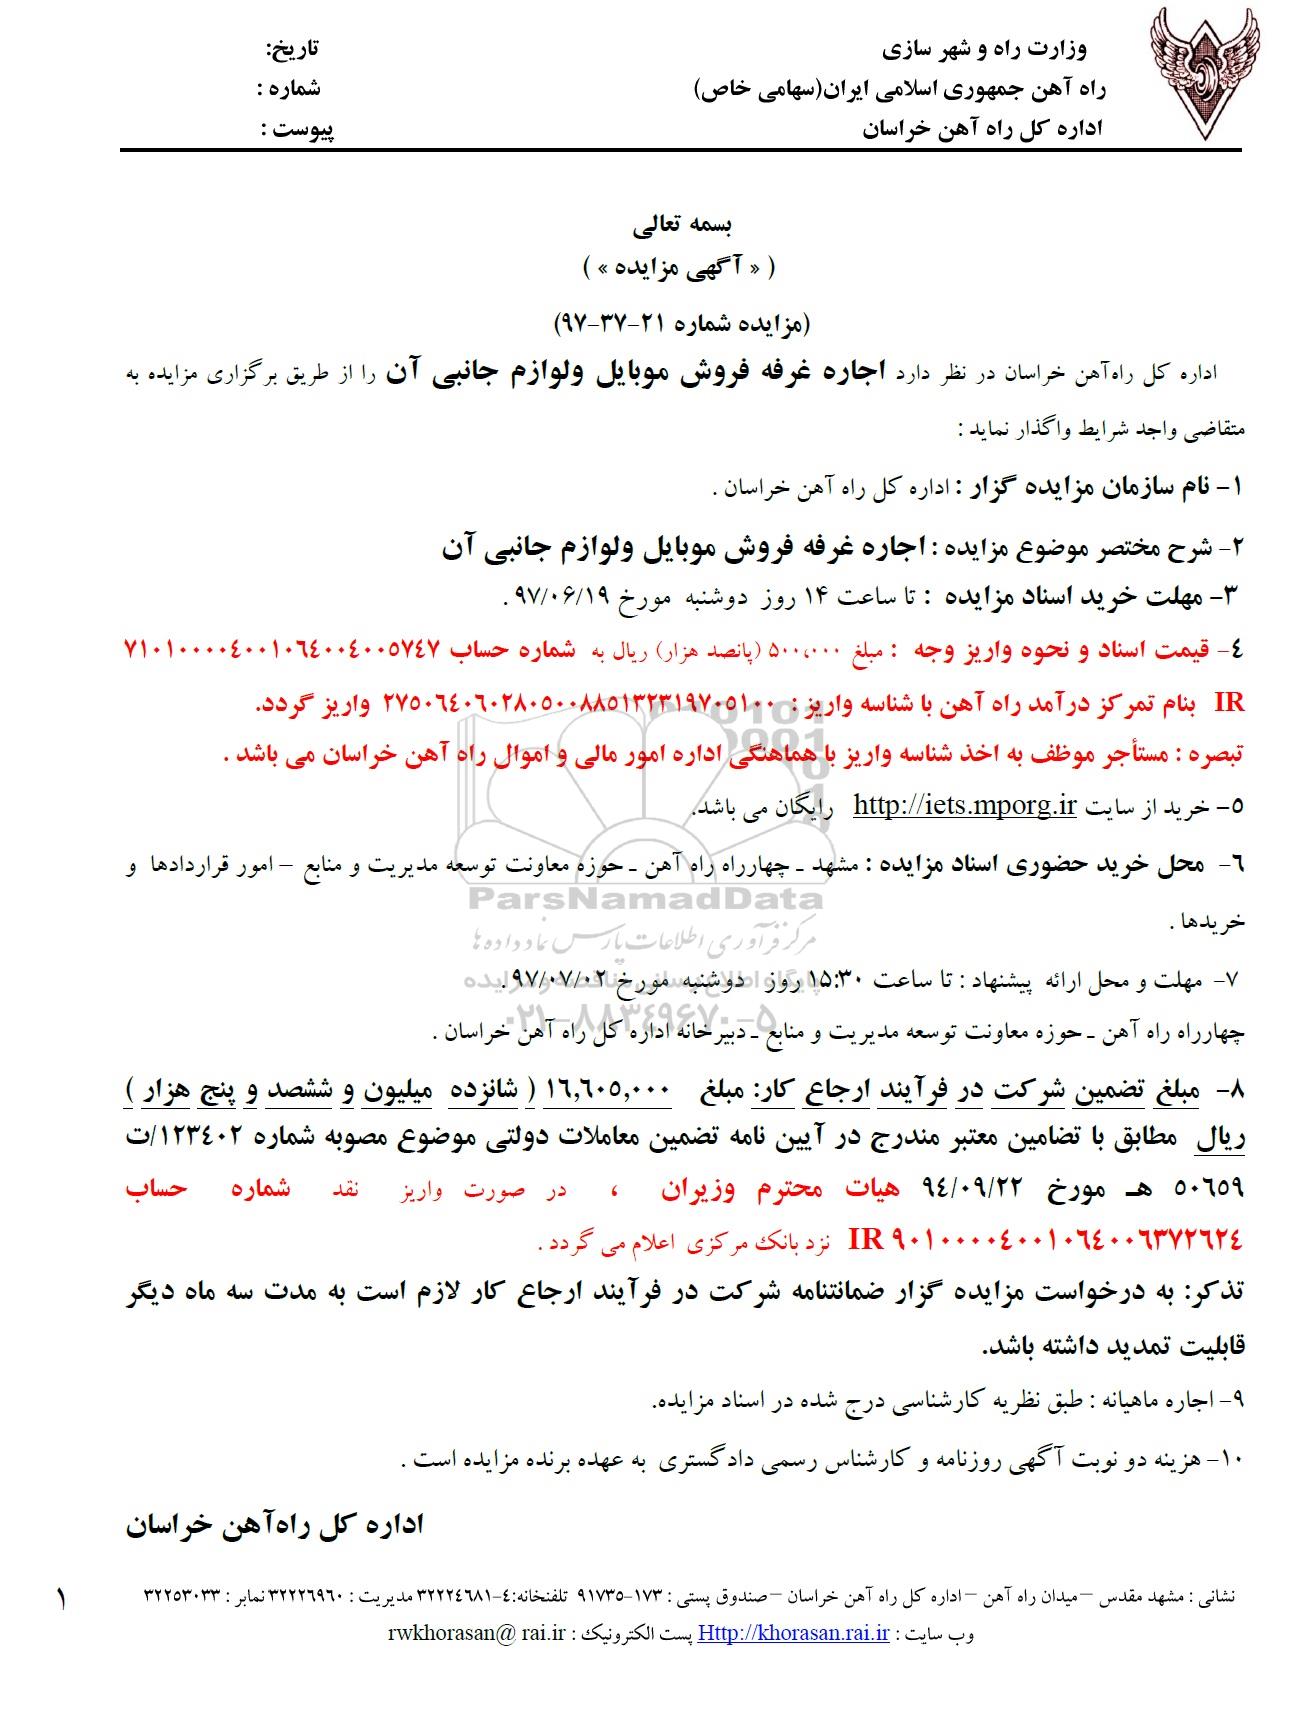 وزارت راه و شهر سازی
تاریخ:
راه آهن جمهوری اسلامی ایران(سهامی خاص)
شماره :
اداره کل راه آهن خراسان
پیوست :
بسمه تعالی
( « آگهی مزایده » )
(مزایده شماره ۲۱-۳۷-۹۷)
اداره کل راه‌آهن خراسان در نظر دارد اجاره غرفه فروش موبایل ولوازم جانبی آن را از طریق برگزاری مزایده به
متقاضی واجد شرایط واگذار نماید :
۱- نام سازمان مزایده گزار : اداره کل راه آهن خراسان .
۲- شرح مختصر موضوع مزایده : اجاره غرفه فروش موبایل ولوازم جانبی آن
۳- مهلت خرید اسناد مزایده : تا ساعت ۱۴ روز دوشنبه مورخ ۹۷/۰۶/۱۹ .
٤- قیمت اسناد و نحوه واریز وجه : مبلغ ۵۰۰،۰۰۰ (پانصد هزار) ریال به شماره حساب ۷۱۰۱۰۰۰۰٤۰۰۱۰٦٤۰۰٤۰۰۵۷٤۷
IR بنام تمرکز درآمد راه آهن با شناسه واریز : ۲۷۵۰٦٤۰٦۰۲۸۰۵۰۰۸۸۵۱۳۲۳۱۹۷۰۵۱۰۰ واریز گردد.
تبصره : مستأجر موظف به اخذ شناسه واریز با هماهنگی اداره امور مالی و اموال راه آهن خراسان می باشد .
۵- خرید از سایت http://iets.mporg.ir رایگان می باشد.
٦- محل خرید حضوری اسناد مزایده : مشهد ـ چهارراه راه آهن ـ حوزه معاونت توسعه مدیریت و منابع – امور قراردادها و
خریدها .
ParsNamadData
مرکز فرآوری اطلاعات پارس نماد داده ها
۷- مهلت و محل ارائه پیشنهاد : تا ساعت ۱۵:۳۰ روز دوشنبه مورخ ۹۷/۰۷/۰۲ .
پایگاه اطلاع رسانی مناقصه و مزایده
۰۲۱-۸۸۳٤۹٦۷۰-۵
چهارراه راه آهن ـ حوزه معاونت توسعه مدیریت و منابع ـ دبیرخانه اداره کل راه آهن خراسان .
۸- مبلغ تضمین شرکت در فرآیند ارجاع کار: مبلغ ۱٦,٦۰۵,۰۰۰ ( شانزده میلیون و ششصد و پنج هزار )
ریال مطابق با تضامین معتبر مندرج در آیین نامه تضمین معاملات دولتی موضوع مصوبه شماره ۱۲۳٤۰۲/ت
۵۰٦۵۹ هـ مورخ ۹٤/۰۹/۲۲ هیات محترم وزیران ، در صورت واریز نقد شماره حساب
IR ۹۰۱۰۰۰۰٤۰۰۱۰٦٤۰۰٦۳۷۲٦۲٤ نزد بانک مرکزی اعلام می گردد .
تذکر: به درخواست مزایده گزار ضمانتنامه شرکت در فرآیند ارجاع کار لازم است به مدت سه ماه دیگر
قابلیت تمدید داشته باشد.
۹- اجاره ماهیانه : طبق نظریه کارشناسی درج شده در اسناد مزایده.
۱۰- هزینه دو نوبت آگهی روزنامه و کارشناس رسمی دادگستری به عهده برنده مزایده است .
اداره کل راه‌آهن خراسان
نشانی : مشهد مقدس –میدان راه آهن –اداره کل راه آهن خراسان –صندوق پستی : ۱۷۳-۹۱۷۳۵ تلفنخانه:٤-۳۲۲۲٤٦۸۱ مدیریت : ۳۲۲۲٦۹٦۰ نمابر : ۳۲۲۵۳۰۳۳
۱
وب سایت : Http://khorasan.rai.ir پست الکترونیک : rwkhorasan@ rai.ir